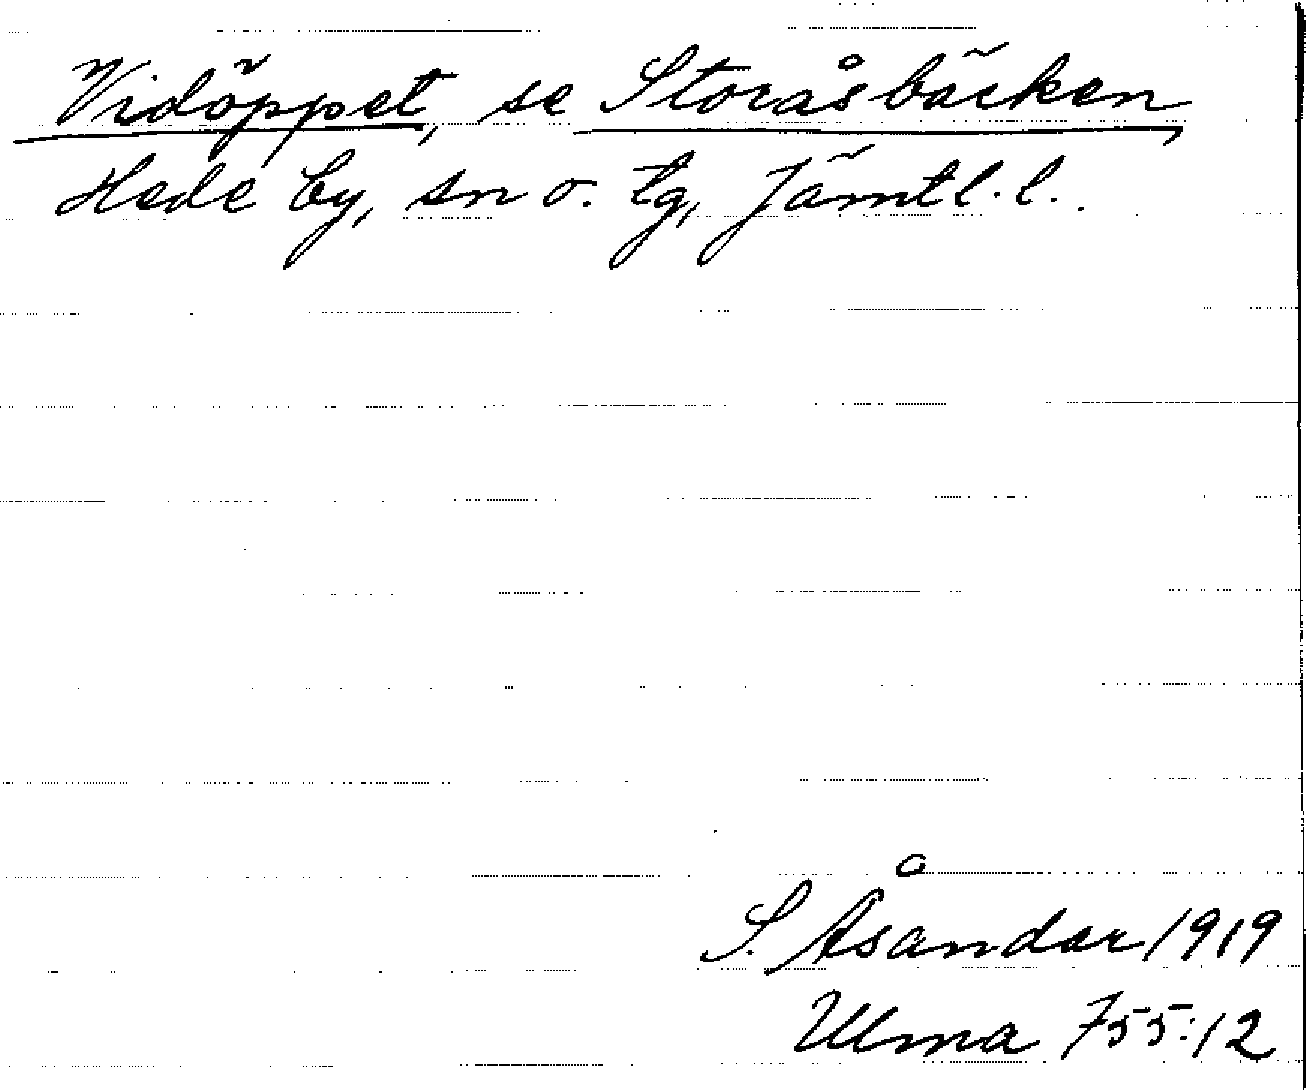 Vidöppet, se Storåsbäcken,
Hede by, sn o. tg, Jämtl. l..
S. Åsander 1919
Ulma 755:12